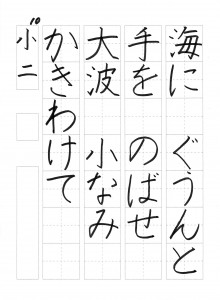 海に　ぐうんと
手を　のばせ
大波　小なみ
かきわけて
小二